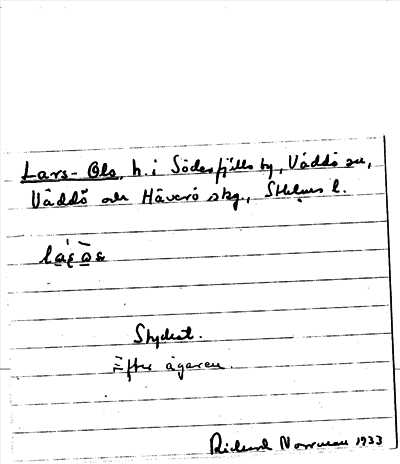 Lars-Ols, h. i Söderfjälls by, Väddö sn,
Väddö och Häverö skg., Sthlms l.
Stycket.
Efter ägaren.
Rickard Norrman 1933